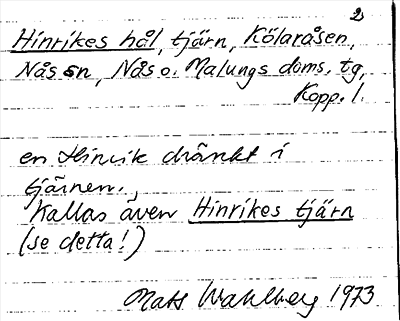 2
Hinrikes hål, tjärn, Kölaråsen,
Nås sn, Nås o. Malungs doms. tg,
Kopp. l.
en Hinrik dränkt i
tjärnen.,
Kallas även Hinrikes tjärn
(se detta!)
Mats Wahlberg 1973